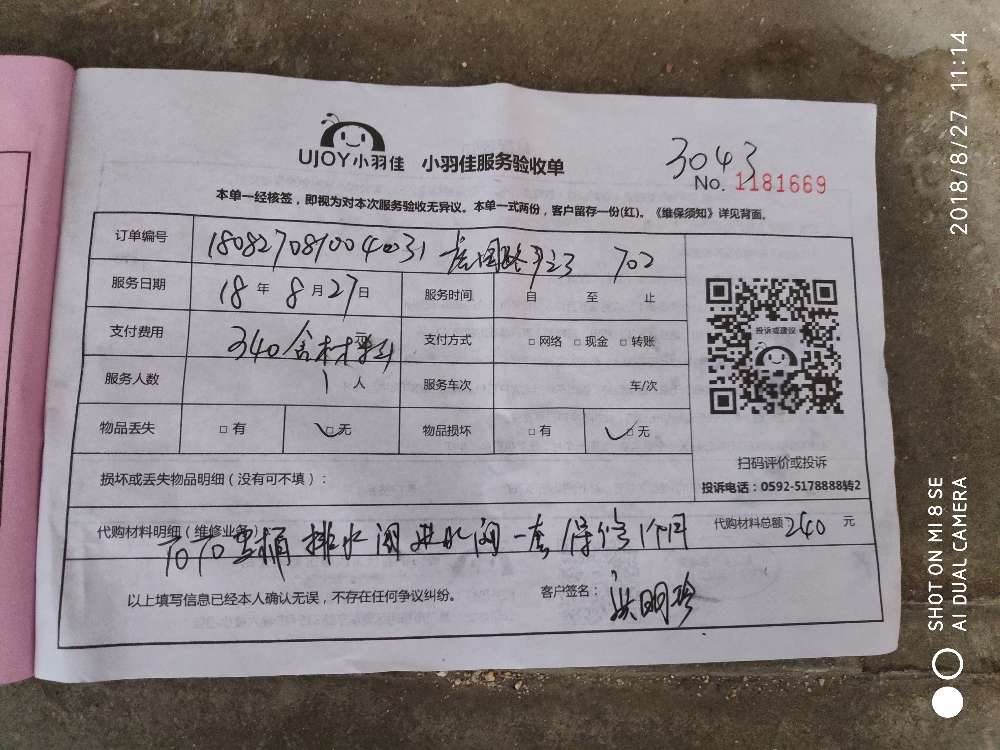 UJOY小羽佳 小羽佳服务验收单
3043
No. 1181669
本单一经核签，即视为对本次服务验收无异议。本单一式两份，客户留存一份(红)。《维保须知》详见背面。
订单编号 180827081004031 702
服务日期 18 年 8 月 27 日 服务时间 自 至 止
支付费用 340含材料 元 支付方式 □ 网络 □ 现金 □ 转账
服务人数 1 人 服务车次 车/次
物品丢失 □ 有 □ 无 物品损坏 □ 有 □ 无
投诉或建议
扫码评价或投诉
投诉电话：0592-5178888转2
损坏或丢失物品明细（没有可不填）：
代购材料明细（维修业务） TOTO 桶排水阀进水阀一套保修1个月 代购材料总额 240 元
以上填写信息已经本人确认无误，不存在任何争议纠纷。 客户签名： 洪明珍
SHOT ON MI 8 SE
AI DUAL CAMERA
2018/8/27 11:14